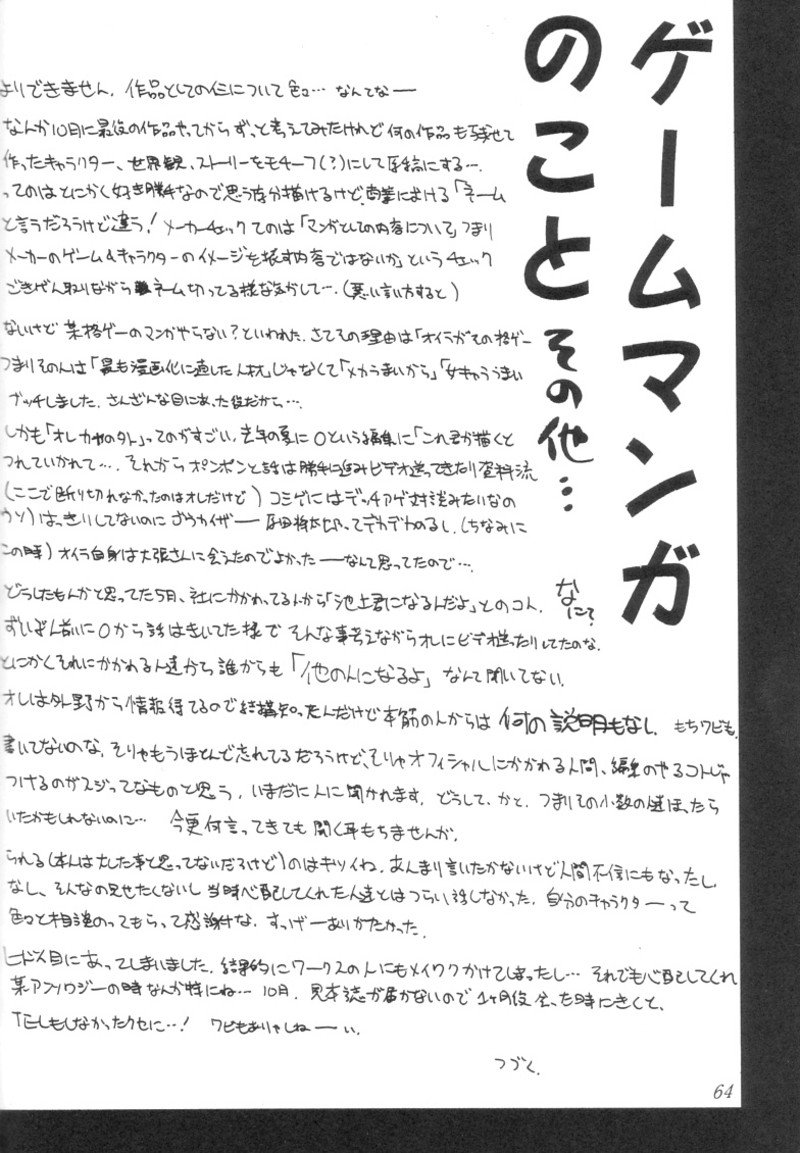 ゲームマンガ
のこと その他…
よりできません. 作品としての仁について色々… なんてなー
なんか10月に最後の作品やってからずっと考えてみたけれど何の作品も残せて
作ったキャラクター、世界観、ストーリーをモチーフ(?)にして原稿にする….
ってのはとにかく好き勝手なので思う存分描けるけど商業における「ネーム
と言うだろうけど違う! メーカーチェックてのは「マンガとしての内容について」つまり
メーカーのゲーム&キャラクターのイメージを壊す内容ではないか」というチェック
ごきげん取りながらネーム切ってる様な気がして…. (悪い言い方すると)
ないけど某格ゲーのマンガやらない?といわれた. さてその理由は「オイラがその格ゲー
つまりその人は「最も漫画化に適した人材」じゃなくて「メカうまいから」「女キャラうまい
ブッチしました. さんざんな目にあった後だから….
しかも「オレ カヤのタト」ってのがすごい. 去年の夏にOという編集に「これ君が描くと
つれていかれて…. それからポンポンと話は勝手に進みビデオ送ってきたり資料流
(ここで断り切れなかったのはオレだけど) コミゲにはデッチアゲ対談みたいなの
ウソ)はっきりしてないのにゴウカイザー ってデカデカのるし. (ちなみに
この時) オイラ自身は大張さんに会えたのでよかったーなんて思ってたので….
どうしたもんかと思ってた5月、社にかかわってる人から「池上君になるんだよ」とのコト. なにて?
ずいぶん前にOから話はきいてた様で そんな事考えながらオレにビデオ送ったりしてたのな.
とにかくそれにかかわる人達から誰からも「他の人になるよ」なんて聞いてない.
オレは外野から情報得てるので結構知ったんだけど本筋の人からは何の説明もなし. もちワビも.
書いてないのな. そりゃもうほとんど忘れてるだろうけど、そりゃオフィシャルにかかわる人間、編集のやるコトじゃ
つけるのがスジってなものと思う. いまだに人に聞かれます. どうして、かと. つまりその小数の
いたかもしれないのに… 今更何言ってきても聞く耳もちませんが.
られる(本人は大した事と思ってないだろうけど)のはキツイね. あんまり言いたかないけど人間不信にもなったし.
なし、そんなの見せたくないし 当時心配してくれた人達とはつらい話しなかった. 自分のキャラクターって
色々と相談のってもらって感謝すな. すっげーありがたかった.
ヒドス目にあってしまいました. 結果的にワークスの人にもメイワクかけてしまったし… それでも心配してくれ
某アンソロジーの時なんか特にね… 10月. 見本誌が届かないので1ヶ月後会った時にきくと、
TELもしなかったクセに…! ワビもありゃしねーい.
つづく.
64